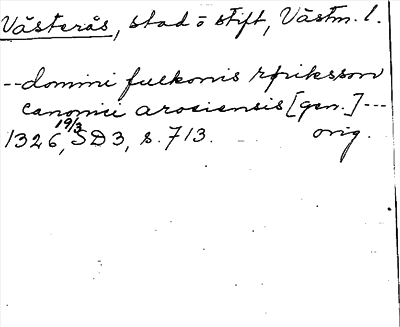 Västerås, stad o stift, Västm. l.
--domini fulkonis rpriksson
canonici arosiensis [gen.]---
1326 19/3, SD3, s. 713. orig.